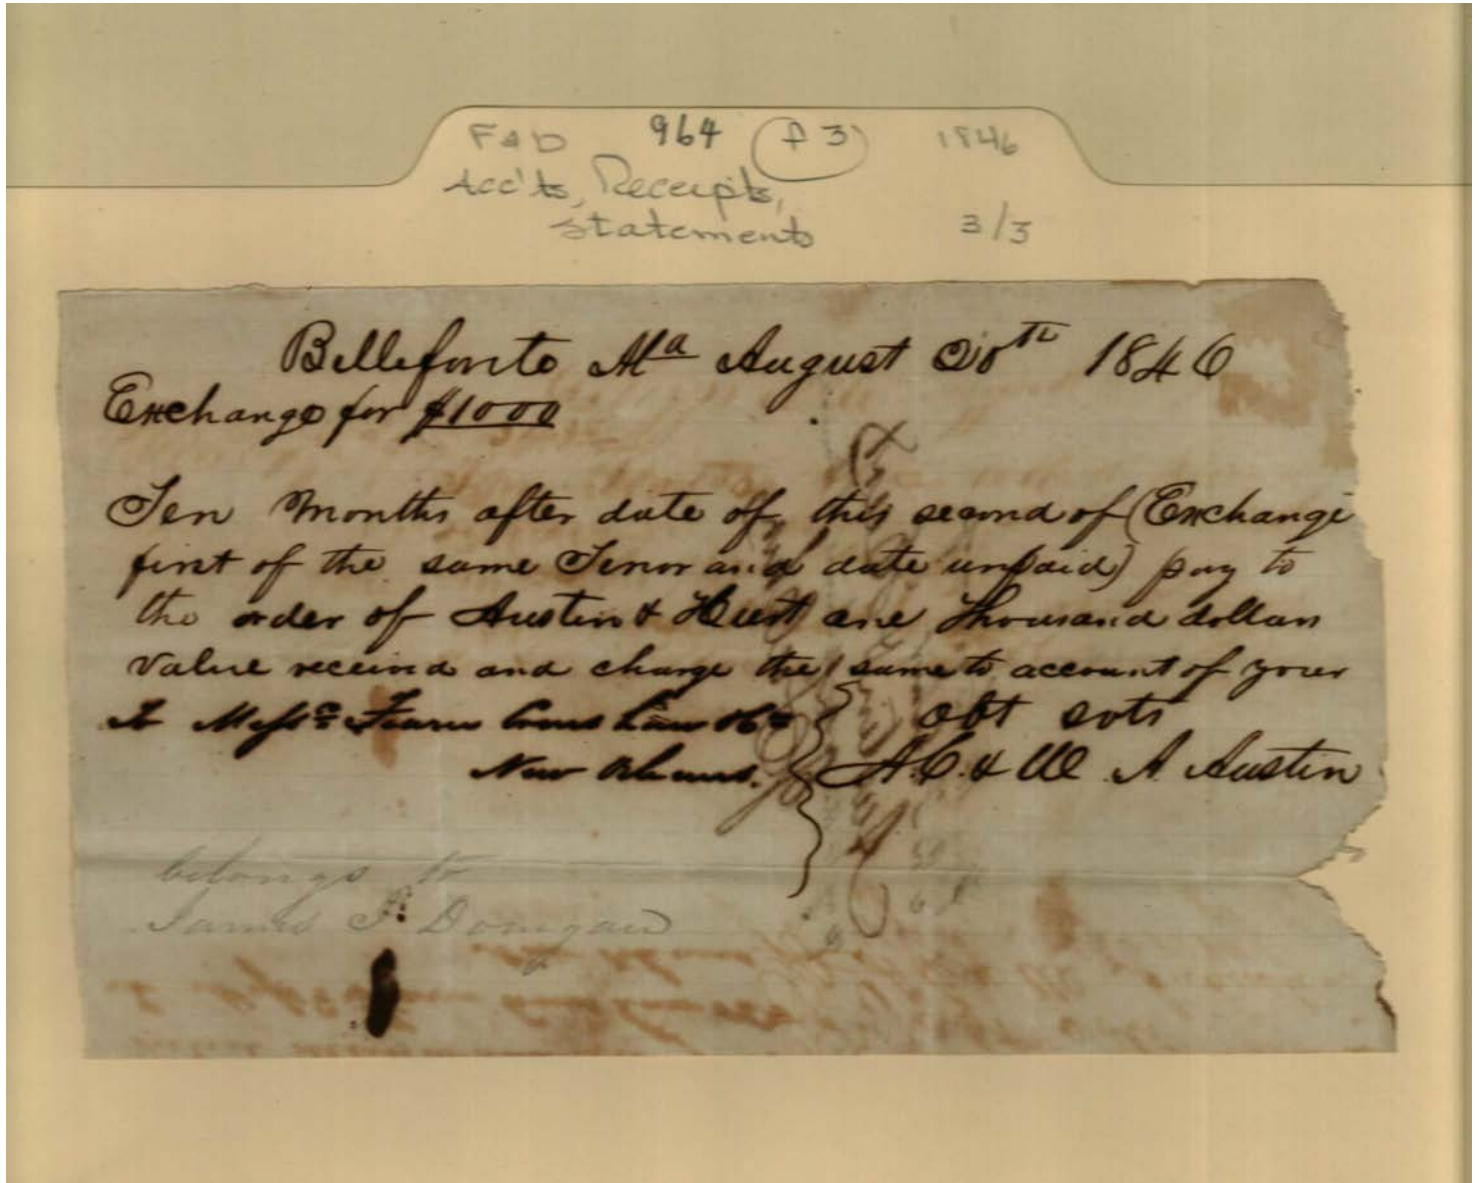 F&D 964 (f 3) 1846
Acc'ts, Receipts,
Statements 3/3
Bellefonte Ala August 20th 1846
Exchange for $1000
Ten months after date of this second of (Exchange
first of the same Tenor and date unpaid) pay to
the order of Austin & Hurt one Thousand dollars
value received and charge the same to account of your
To Messrs Fearn & Co obt svts
New Orleans. A. C. & W. A Austin
belongs to
James J. Donegan